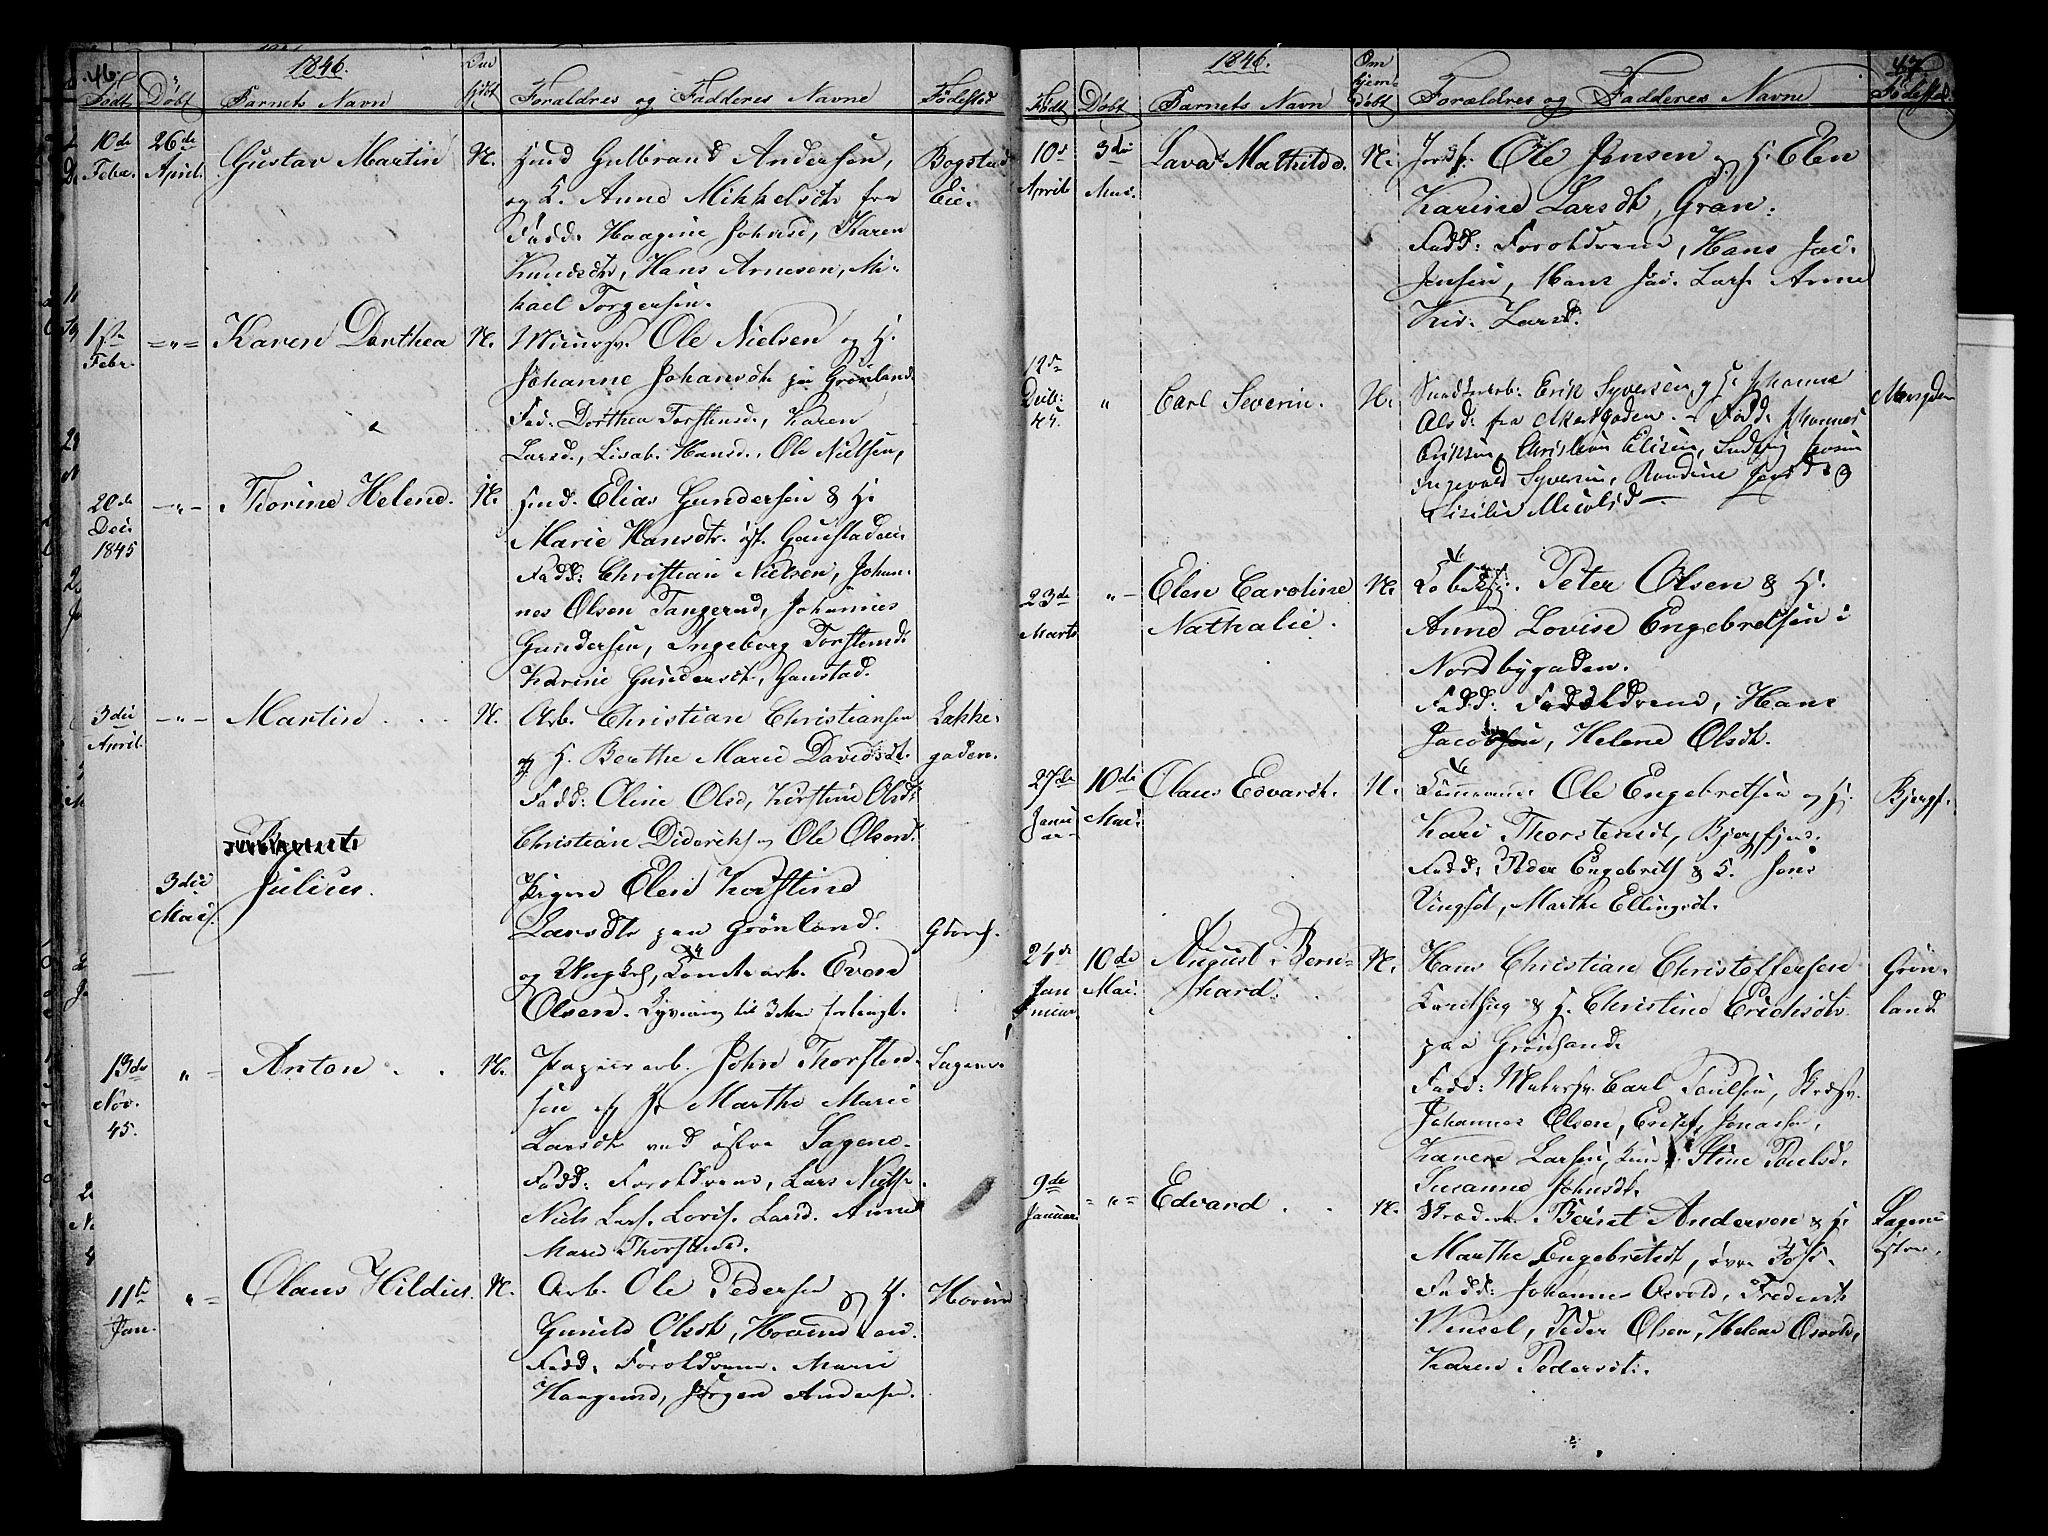 46.
1846.
Født Døbt Barnets Navn Om hjdbt Forældres og Fadderes Navne Fødested
10de Febr. 26de April. Gustav Martin N. Huusmd Gulbrand Andersen, Bogstad
og H. Anne Mikkelsdtr fra Eie.
Fadd: Haagine Johnsd, Karen
Knudsdtr, Hans Arnesen, Mi-
kael Torgersen.
1ste Febr. =„= Karen Dorthea N. Muursv. Ole Nielsen og H.
Johanne Johansdtr paa Grønland.
Fad. Dorthea Torstensd., Karen
Larsd., Lisab. Hansd., Ole Nielsen,
20de Dec. 1845 -„- Thorine Helene. N. Huusmd. Elias Gundersen & H.
Marie Hansdtr. Gaustadeie.
Fadd: Christian Nielsen, Johan-
nes Olsen Tangerud, Johannes
Gundersen, Ingeborg Torstensd.
Karine Gundersdt, Gaustad.
3die April. -„- Martin . . N. Arb. Christian Christiansen Lakke-
og H. Berthe Marie Davidsdt. gaden.
Fadd: Oline Olsd, Kirstine Olsd:
Christian Dideriks og Ole Olsen.
3die Mai. Julius. Pigen Elen Kirstine
Larsdtr paa Grønland.
og Ungkarl, Tomtearb. Even
Olsen.
13de Nov. 45. „ - Anton . . N. Papiirarb. John Thorsten- Sagene
sen og H. Marthe Marie
Larsdtr ved østre Sagene.
Fadd: Forældrene, Lars Niels.
Niels Lars. Lovis. Larsd. Anne
Marie Thorstensd.
11te Jan. „ = Olaus Hildius. N. Arb. Ole Pedersen og H. Hovind
Gunild Olsdtr, Hovind eie.
Fadd. Forældrene. Marie
Haagensd, Jørgen Andersen.
47
1846.
Født Døbt Barnets Navn Om hjem- døbt Forældres og Fadderes Navne Fødested.
10de April 3die Mai. Lava Mathilde. N. Jordf. Ole Jensen og H. Elen
Karine Larsdt, Grøn:
Fadd: Forældrene, Hans Jac.
Jensen, Hans Jac. Lars. Anne
Kir. Larsd.
12te Decb: 45. „ Carl Severin. N. Erik Syversen og H. Johanne
Olsd: fra Akersgaden. - Fadd: Johannes
Eriksen, Christian Elisen, Ludvig
Ingevald Syversen, Randine
23de Marts „ - Elen Caroline N. Peter Olsen & H.
Nathalie. Anne Lovise Engebretsen i
Nordbygaden.
Fadd: Forældrene, Hans
Jacobsen, Helene Olsdt.
27de Janu- ar 10de Mai: Olaus Edvardt. N. Tømmermd Ole Engebretsen og H. Bjergf.
Kari Thorstensdt, Bjergfjer.
Fadd: Peder Engebrets & H. Jens
Vingset, Marthe Ellingsdt.
24de Jan nuar 10de Mai. August Bern- N. Hans Christian Christoffersen Grøn-
hard. & H. Christine Erichsdtr land
paa Grønland.
Fadd: Malersv. Carl Poulsen, Skræsv.
Johannes Olsen, Erich Jonassen,
Karen Larsen, Stine Poulsd.
Susanne Johnsdt.
9de Januar = „ = Edvard . . N. Skræderm Bernt Andersen & H. Sagene
Marthe Engebretsdt, øvre Fos. østre.
Fadd: Johannes Osvold, Frederik
Wensel, Peder Olsen, Helene Osvold,
Karen Pedersdt.